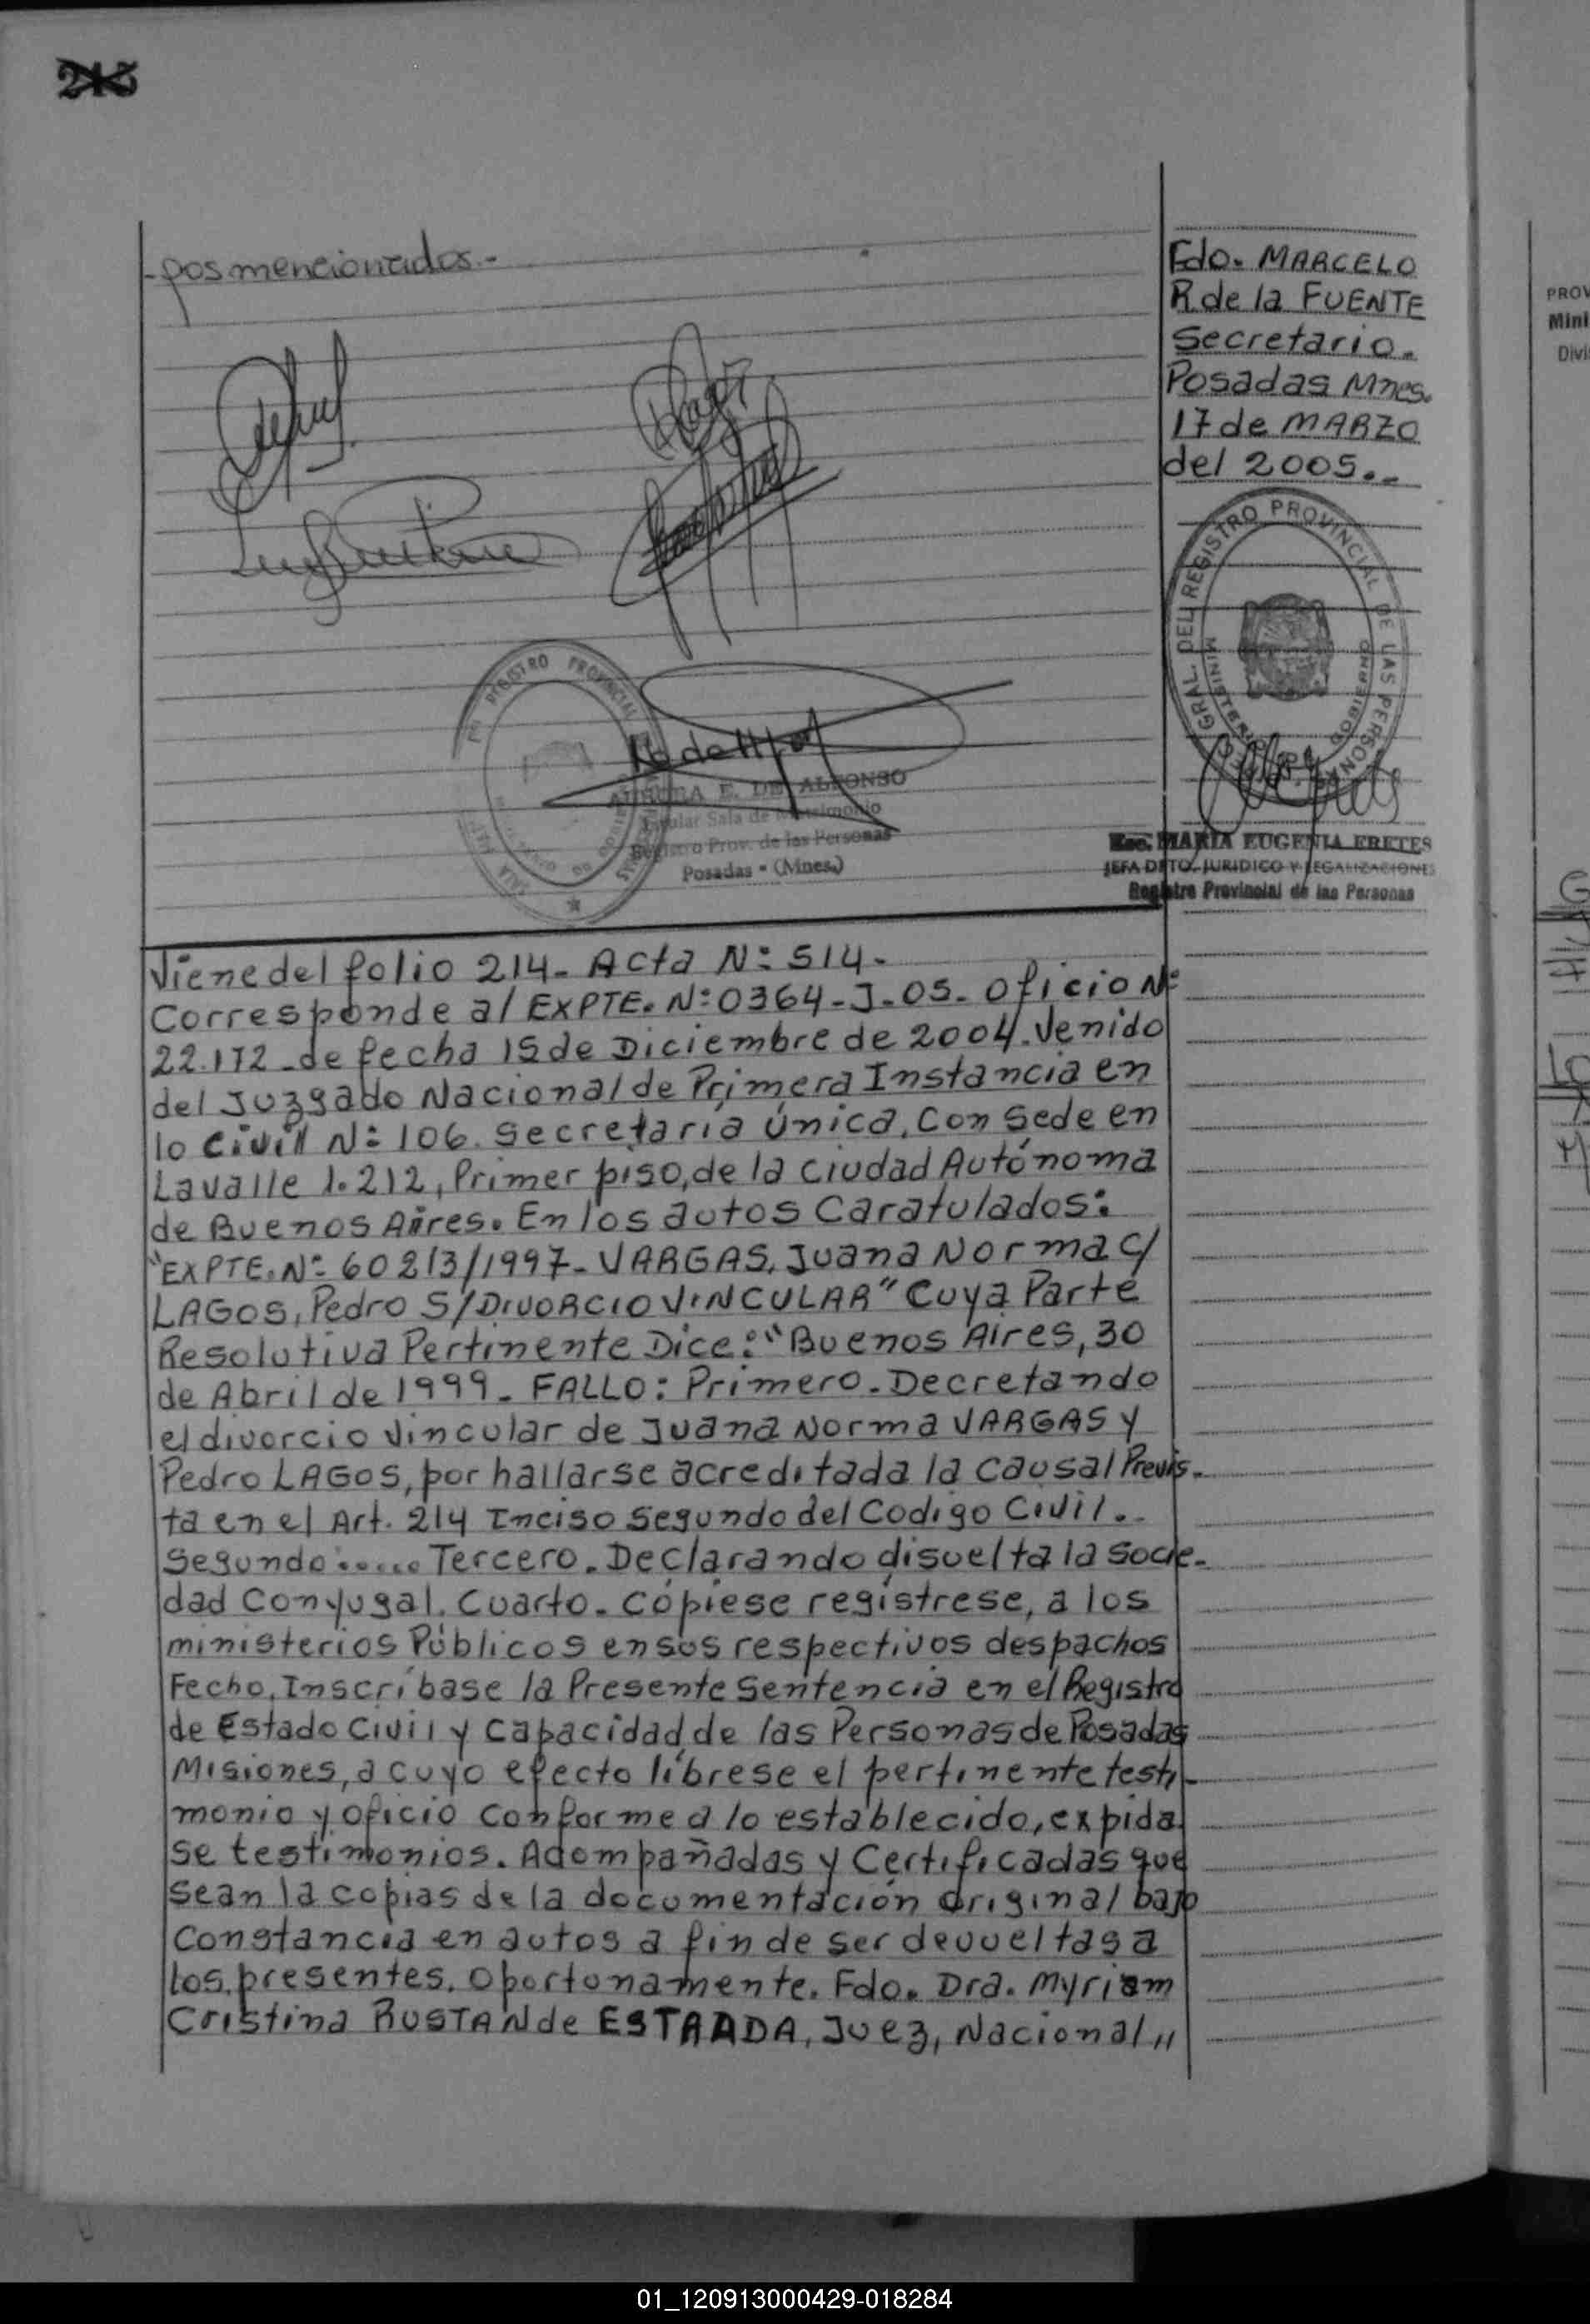 215
-pos mencionados.-
Fdo. MARCELO
R. de la FUENTE
Secretario.
Posadas Mnes.
17 de MARZO
del 2005.-
GRAL. DEL REGISTRO PROVINCIAL DE LAS PERSONAS
MINISTERIO GOBIERNO
REGISTRO PROVINCIAL
AURORA E. DE ALFONSO
Titular Sala de Matrimonio
Registro Prov. de las Personas
Posadas - (Mnes.)
Esc. MARIA EUGENIA FRETES
JEFA DPTO. JURIDICO Y LEGALIZACIONES
Registro Provincial de las Personas
Viene del folio 214- Acta N: 514-
Corresponde al EXPTE. N: 0364-J-05- Oficio N:
22.172-de fecha 15 de Diciembre de 2004. Venido
del Juzgado Nacional de Primera Instancia en
lo Civil N: 106. Secretaría Única, Con Sede en
Lavalle 1.212, Primer piso, de la Ciudad Autónoma
de Buenos Aires. En los autos Caratulados:
"EXPTE. N: 60213/1997- VARGAS, Juana Norma C/
LAGOS, Pedro S/DIVORCIO VINCULAR" Cuya Parte
Resolutiva Pertinente Dice: "Buenos Aires, 30
de Abril de 1999- FALLO: Primero-Decretando
el divorcio Vincular de Juana Norma VARGAS y
Pedro LAGOS, por hallarse acreditada la Causal Previs-
ta en el Art. 214 Inciso Segundo del Codigo Civil..
Segundo...... Tercero. Declarando disuelta la Socie-
dad Conyugal. Cuarto. Cópiese regístrese, a los
ministerios Públicos en sus respectivos despachos
Fecho, Inscríbase la Presente Sentencia en el Registro
de Estado Civil y Capacidad de las Personas de Posadas
Misiones, a cuyo efecto líbrese el pertinente testi-
monio y oficio conforme a lo establecido, expida
se testimonios. Acompañadas y Certificadas que
sean la copias de la documentación original bajo
Constancia en autos a fin de ser devueltas a
los presentes. Oportunamente. Fdo. Dra. Myriam
Cristina RUSTAN de ESTRADA, Juez, Nacional "
PROV
Mini
Divis
01_120913000429-018284